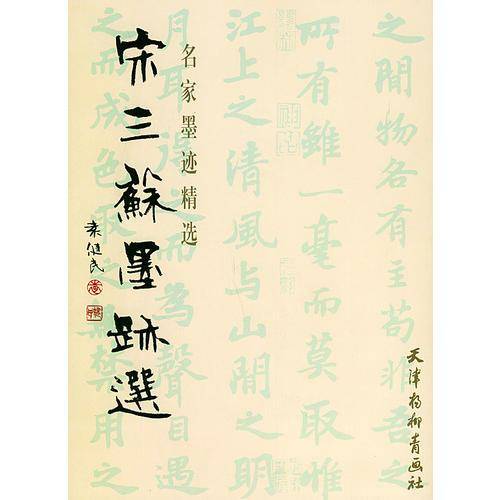 名家墨迹精选
宋三蘇墨跡選
天津杨柳青画社
之閒物各有主苟非吾之
所有雖一毫而莫取惟
江上之清風与山閒之明
月耳得之而為聲目遇
之而成色取之無禁用之